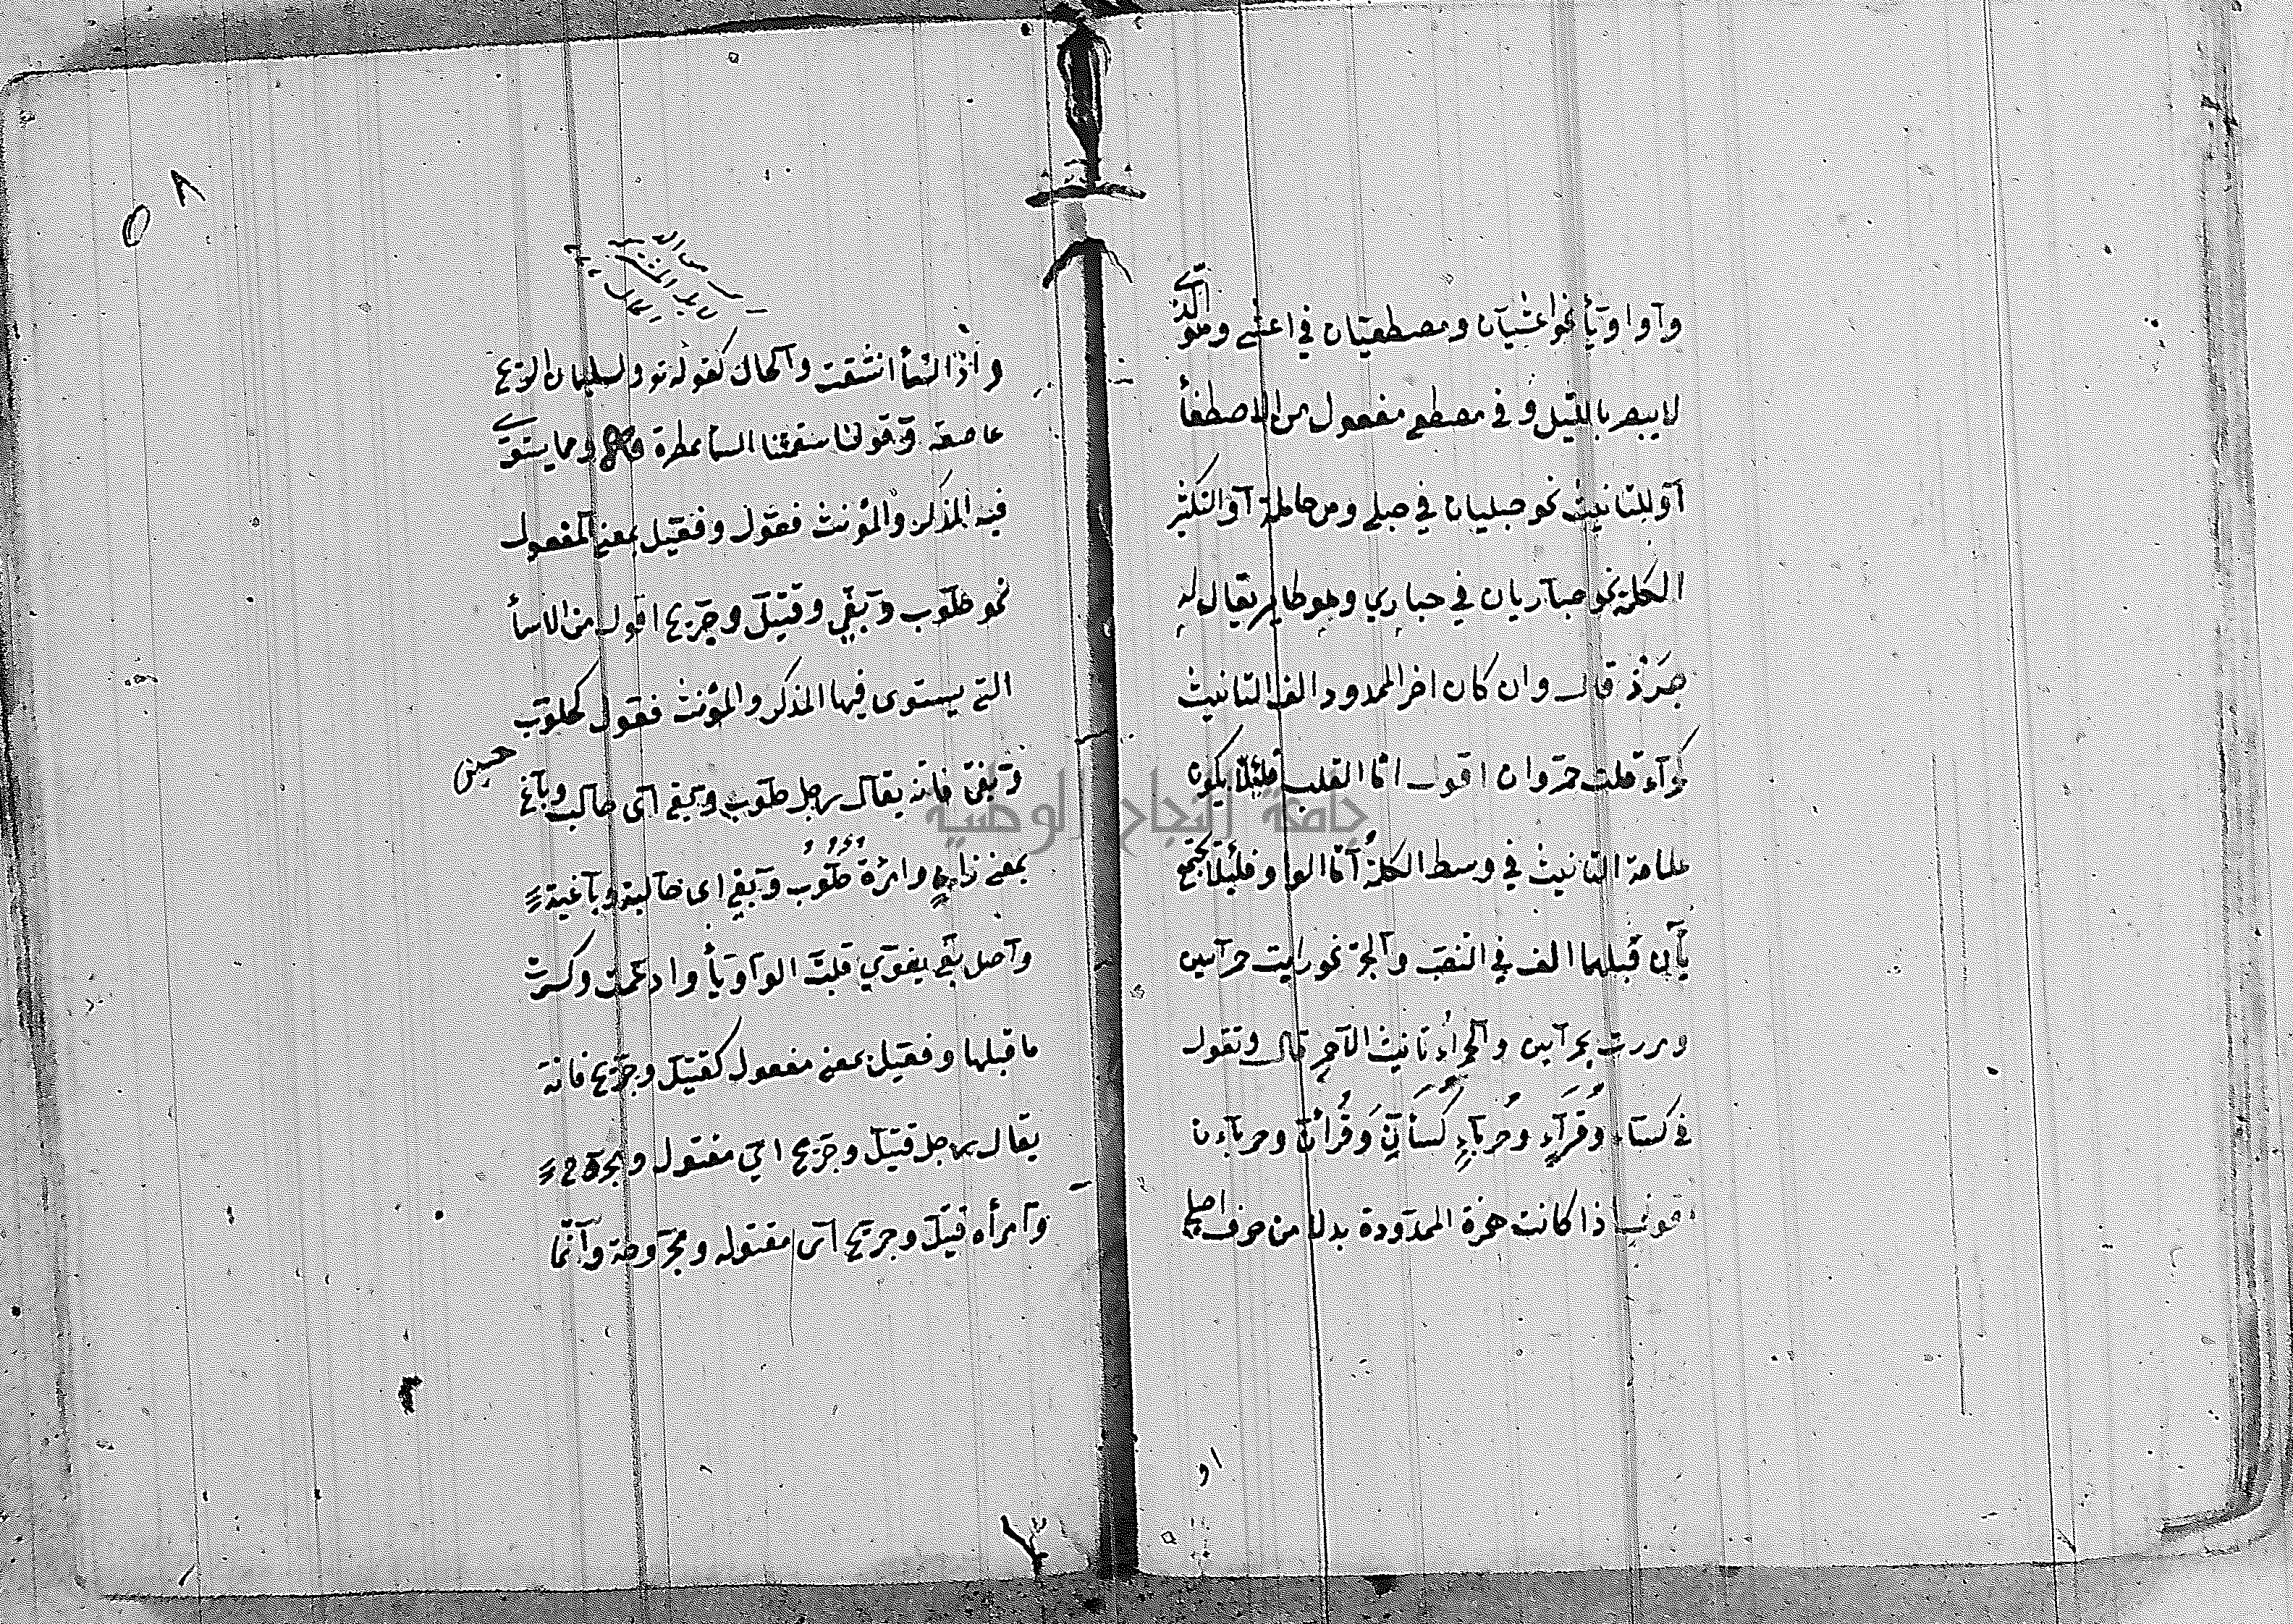 وآواويأ نحو اعشيآن ومصطفيان في اعشى وهو الذي
لا يبصر بالليل و في مصطفى مفعول من الاصطفأ
آو للتانيث نحو حبليان في حبلى ومن حاملة آو التكثير
الكلمة نحو حبآريان في حباري وهو طاير يقال له
جرذ قال وان كان اخر الممدود الف التانيث
كمرآء قلت حمروان اقول اما القلب فليلا يكون
علامة التانيث في وسط الكلمة آما الواو فليلا تجتمع
يآن قبلهما الف في النصب وآلجر نحو رايت حمرآيين
ومررت بحمرآيين وآلحمرآء تانيث الآحمر قال وتقول
في كسآء وقرآء وحربآء كسآن وقرآن وحربآن
اقول اذا كانت همزة الممدودة بدلا من حرف اصلي
او
٥٨
واذا السمأ انشقت وآلحال كقوله تع ولسليمان الريح
عاصفة وقولنا سقتنا السمأ مطرة قال ومما يستوي
فيه المذكر والمؤنث فعول وفعيل بمعنى المفعول
نحو حلوب وبغي وقتيل وجريح اقول من الاسمأ
التي يستوى فيها المذكر والمؤنث فعول كحلوب
وبغى فانه يقال رجل حلوب وبغى اى حالب وباغ
حسين
بمعنى زان وامرة حلوب وبغي اى حالبة وبآغية
وآصل بغي بغوي قلبت الوآو يأ وادغمت وكسرت
ما قبلها وفعيل بمعنى مفعول كقتيل وجريح فانه
يقال رجل قتيل وجريح اي مقتول ومجروح
وآمرأه قتيل وجريح آى مقتوله ومجروحة وآنما
جامعة النجاح الوطنية